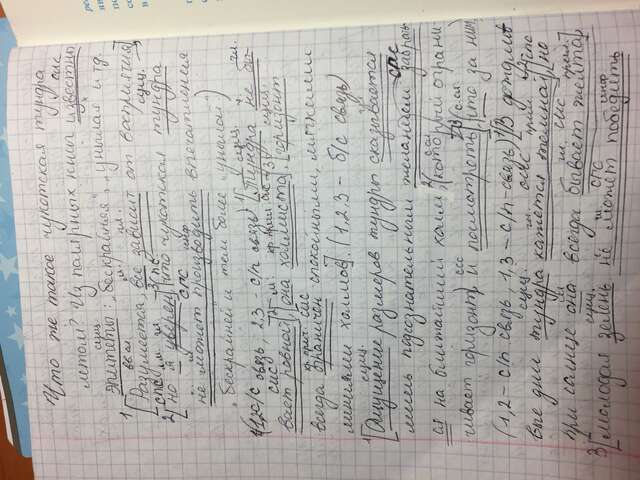 Что же такое чукотская тундра
сис
летом? Из полярных книг известны
сущ.
эпитеты: "бескрайняя", "унылая" и тд.
1 вв.сл. м. гл.
[Разумеется, все зависит от восприятия],
2 спс м. гл. 3 пв сущ.
[но я уверен], (что чукотская тундра
спс инф
не может производить впечатления
"бескрайней и тем более "унылой")
(1,2 с/с связь, 2,3 - с/п связь) 1[Тундра не бы-
сис
вает ровной], 2[она холмиста], 3[горизонт
кр. прич. сис
всегда ограничен спокойными, мягкими
линиями холмов]. (1,2,3 - б/с связь)
1 сущ.
[Ощущение размеров тундры сказывается
спс
лишь подсознательным желанием забрать-
с.сл.
ся на ближайший холм, 2(который ограни-
чивает горизонт), и посмотреть], 3(что за ним).
(1,2 - с/п связь, 1,3 - с/п-связь) 1[В дождли
сущ. гл. сис прил. спс
вые дни тундра кажется темной], 2[но
м гл. сис прил.
при солнце она всегда бывает желта],
3 сущ. спс инф
[молодая зелень не может победить